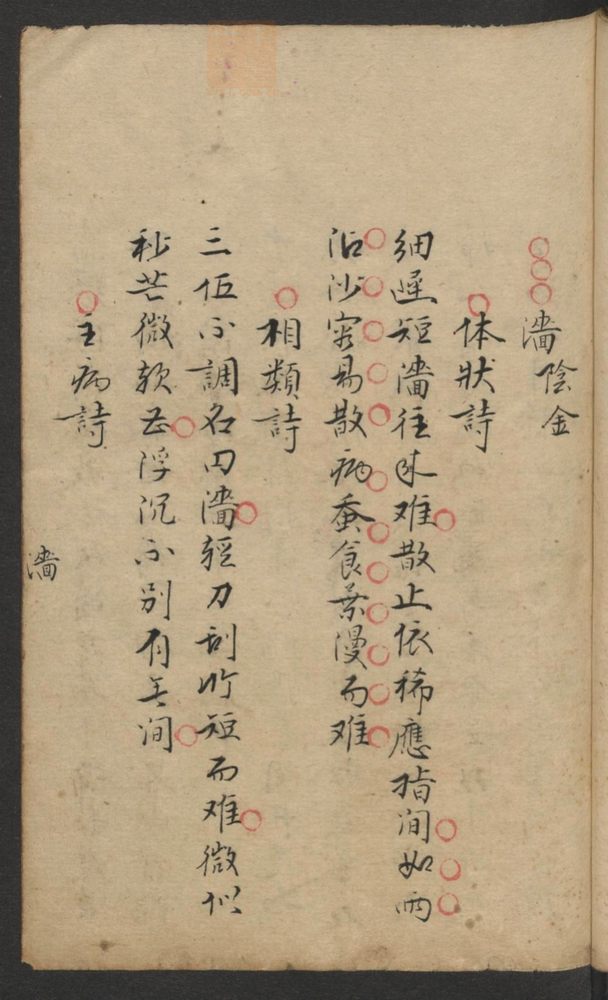 濇陰金
体状詩
細遲短濇往来难散止依稀應指间如雨
沾沙容易散病蚕食葉漫而难
相類詩
三伍不調名曰濇輕刀刮竹短而难微似
秒芒微软甚浮沉不别有无间
主病詩
濇